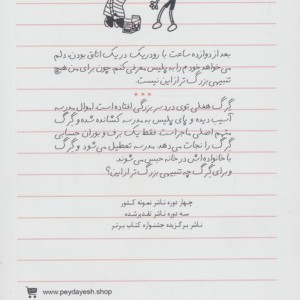 بعد از دوازده ساعت با رودریک در یک اتاق بودن، دلم
می‌خواهد خودم را به پلیس معرفی کنم، چون برای من هیچ
تنبیهی بزرگ‌تر از این نیست.
***
گرگ هفلی توی دردسر بزرگی افتاده است. اموال مدرسه
آسیب دیده و پای پلیس به مدرسه کشانده شده و گرگ
متهم اصلی ماجراست. فقط یک برف و بوران حسابی
گرگ را نجات می‌دهد. مدرسه تعطیل می‌شود و گرگ
با خانواده‌اش در خانه حبس می‌شوند.
و برای گرگ چه تنبیهی بزرگ‌تر از این؟
چهار دوره ناشر نمونه کشور
سه دوره ناشر تقدیر شده
ناشر برگزیده جشنواره کتاب برتر
www.peydayesh.shop